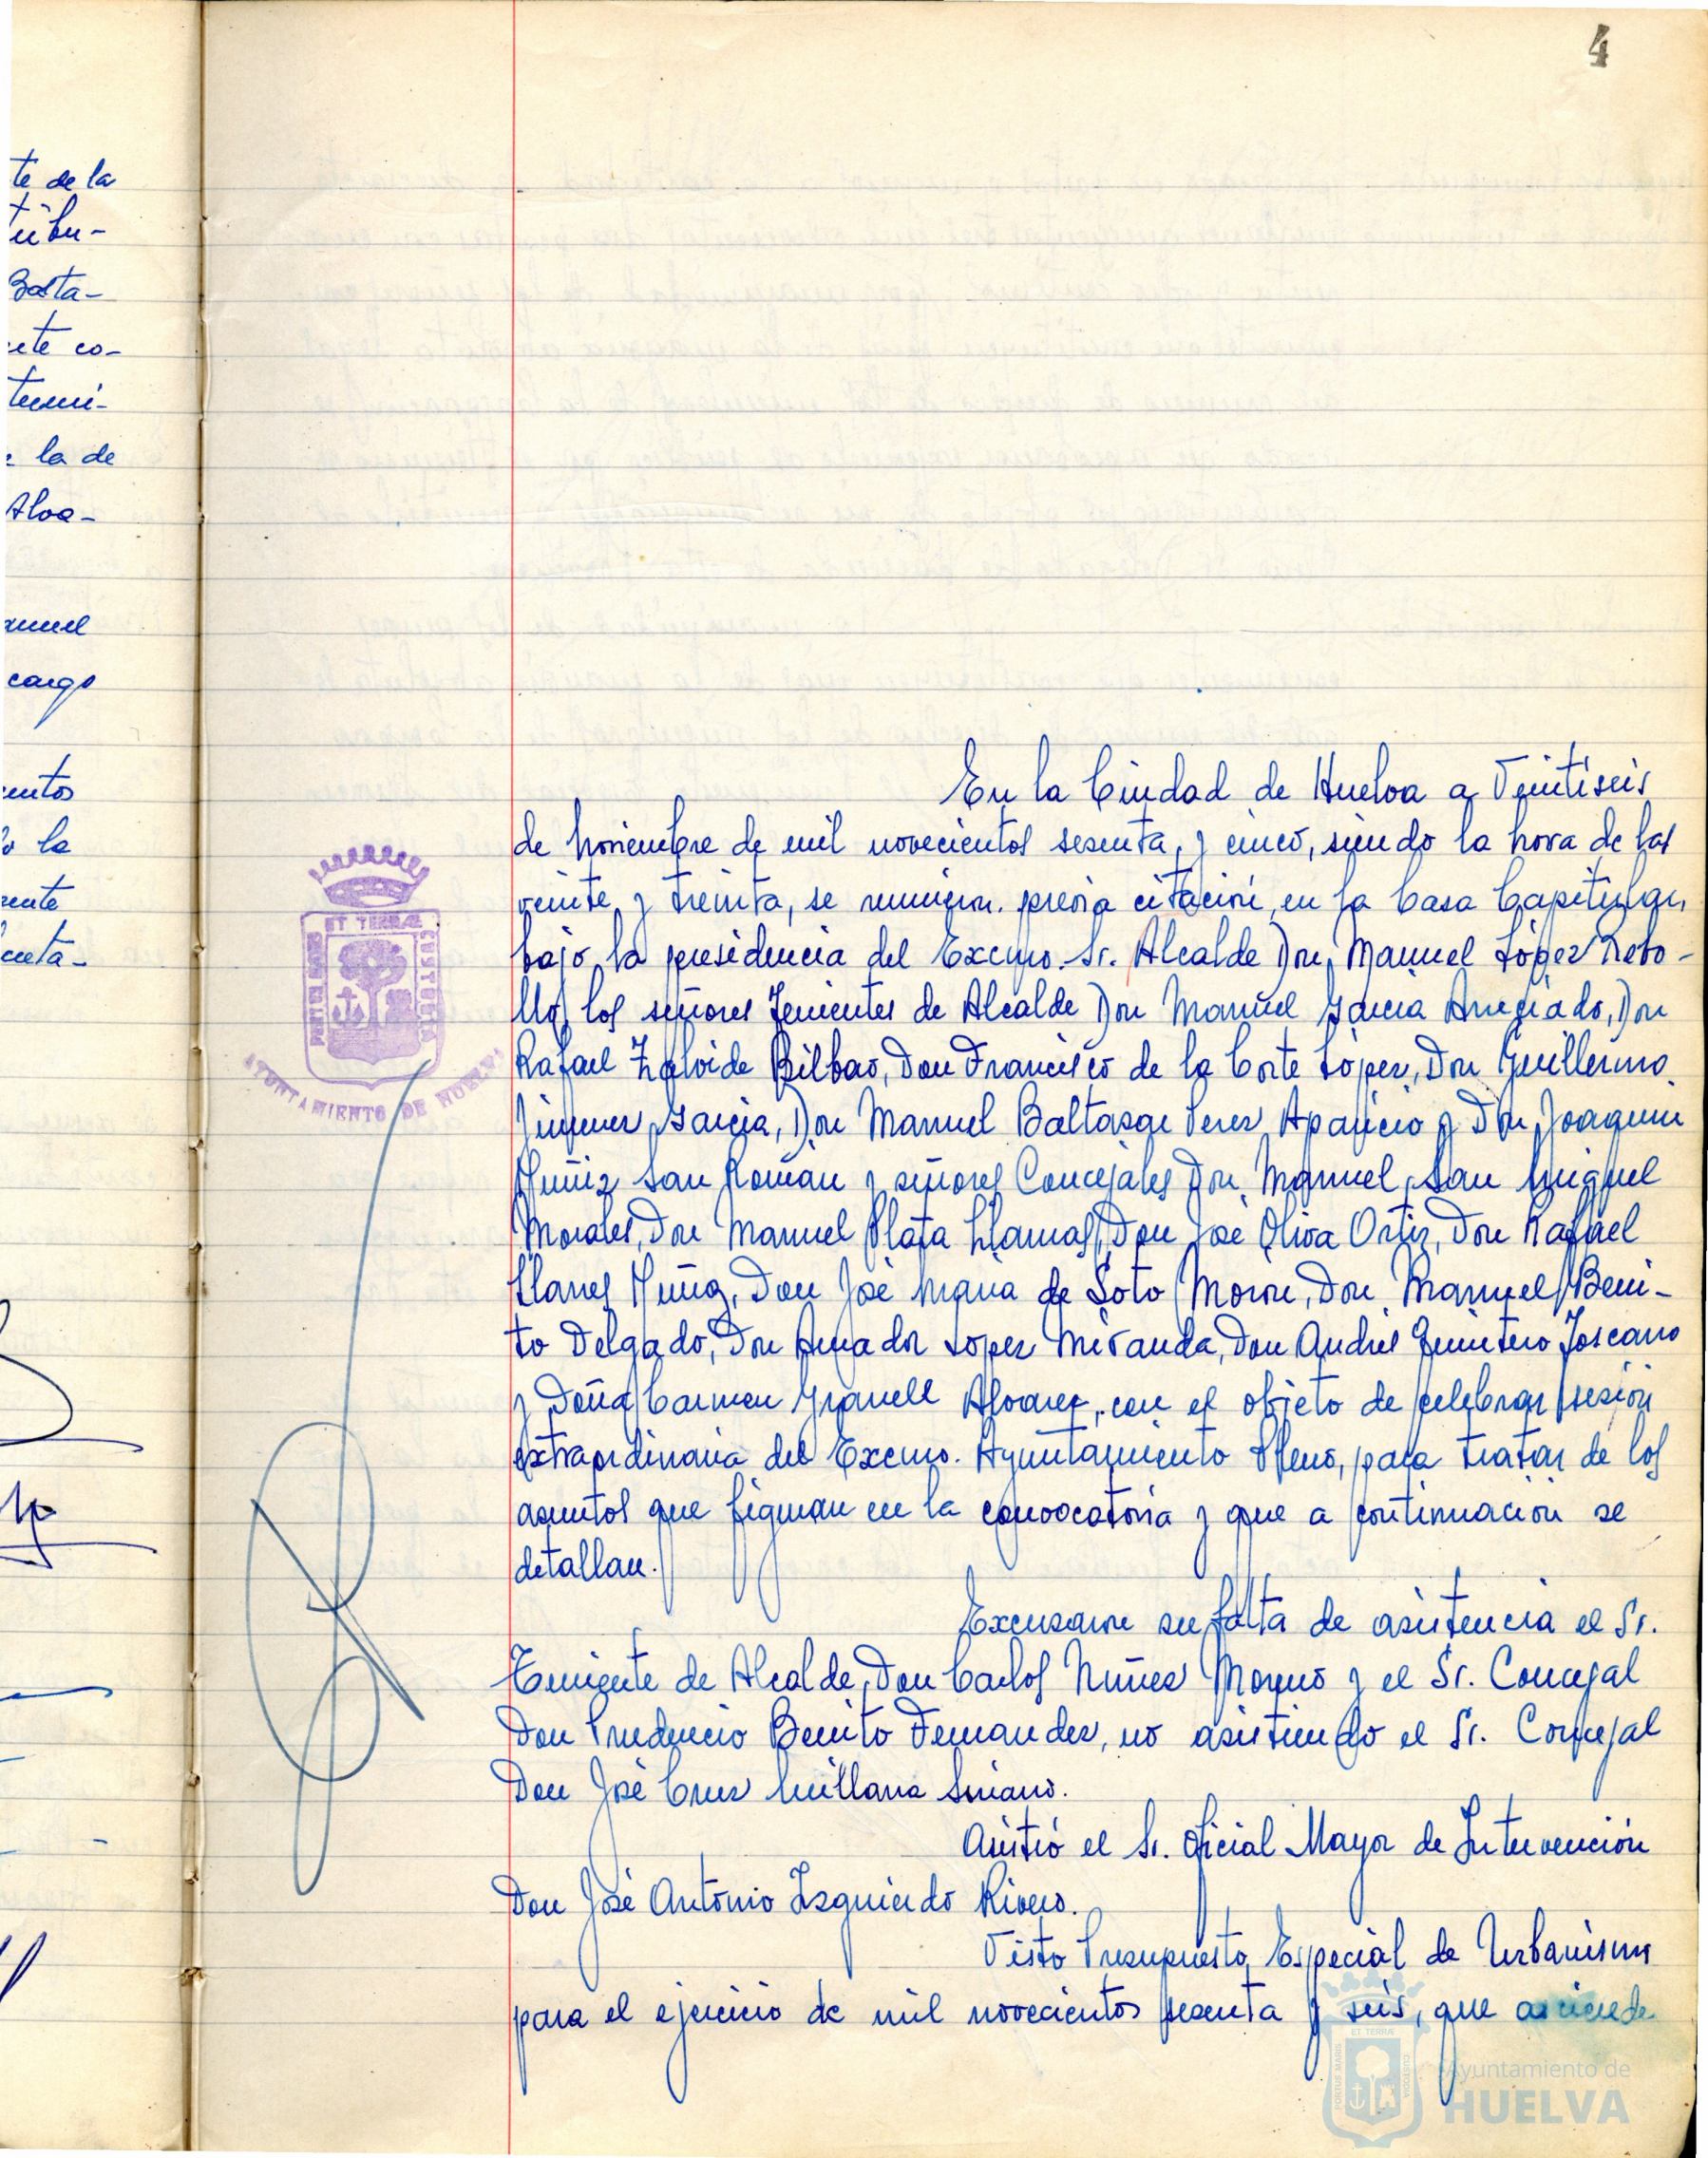 4
te de la
tribu-
Balta-
ete co-
termi-
e la de
Alva-
anuel
cargo
entos
o la
ente
centa-
En la Ciudad de Huelva a Veintiseis
de Noviembre de mil novecientos sesenta y cinco, siendo la hora de las
veinte y treinta, se reunieron. previa citación, en la Casa Capitular,
bajo la presidencia del Excmo. Sr. Alcalde Don Manuel López Rebo-
llo, los señores Tenientes de Alcalde Don Manuel Garcia Arreciado, Don
Rafael Zalvide Bilbao, Don Francisco de la Corte López, Don Guillermo
Jimenez Garcia, Don Manuel Baltasar Perez Aparicio y Don Joaquin
Muñiz San Román y señores Concejales Don Manuel San Miguel
Morales, Don Manuel Plata Llamas, Don José Oliva Ortiz, Don Rafael
Llanes Muñoz, Don José Maria de Soto Morón, Don Manuel Beni-
to Delgado, Don Amador López Miranda, Don Andres Quintero Toscano
y Doña Carmen Granell Alvarez, con el objeto de celebrar sesión
extraordinaria del Excmo. Ayuntamiento Pleno, para tratar de los
asuntos que figuran en la convocatoria y que a continuación se
detallan.
Excusaron su falta de asistencia el Sr.
Teniente de Alcalde, Don Carlos Nuñez Moreno y el Sr. Concejal
Don Prudencio Benito Fernandez, no asistiendo el Sr. Concejal
Don José Cruz Millana Soriano.
Asistió el Sr. Oficial Mayor de Intervención
Don José Antonio Izquierdo Rivero.
Visto Presupuesto Especial de Urbanismo
para el ejercicio de mil novecientos sesenta y seis, que asciende
PORTUS MARIS ET TERRAE CUSTODIA
AYUNTAMIENTO DE HUELVA
PORTUS MARIS ET TERRAE CUSTODIA
Ayuntamiento de
HUELVA